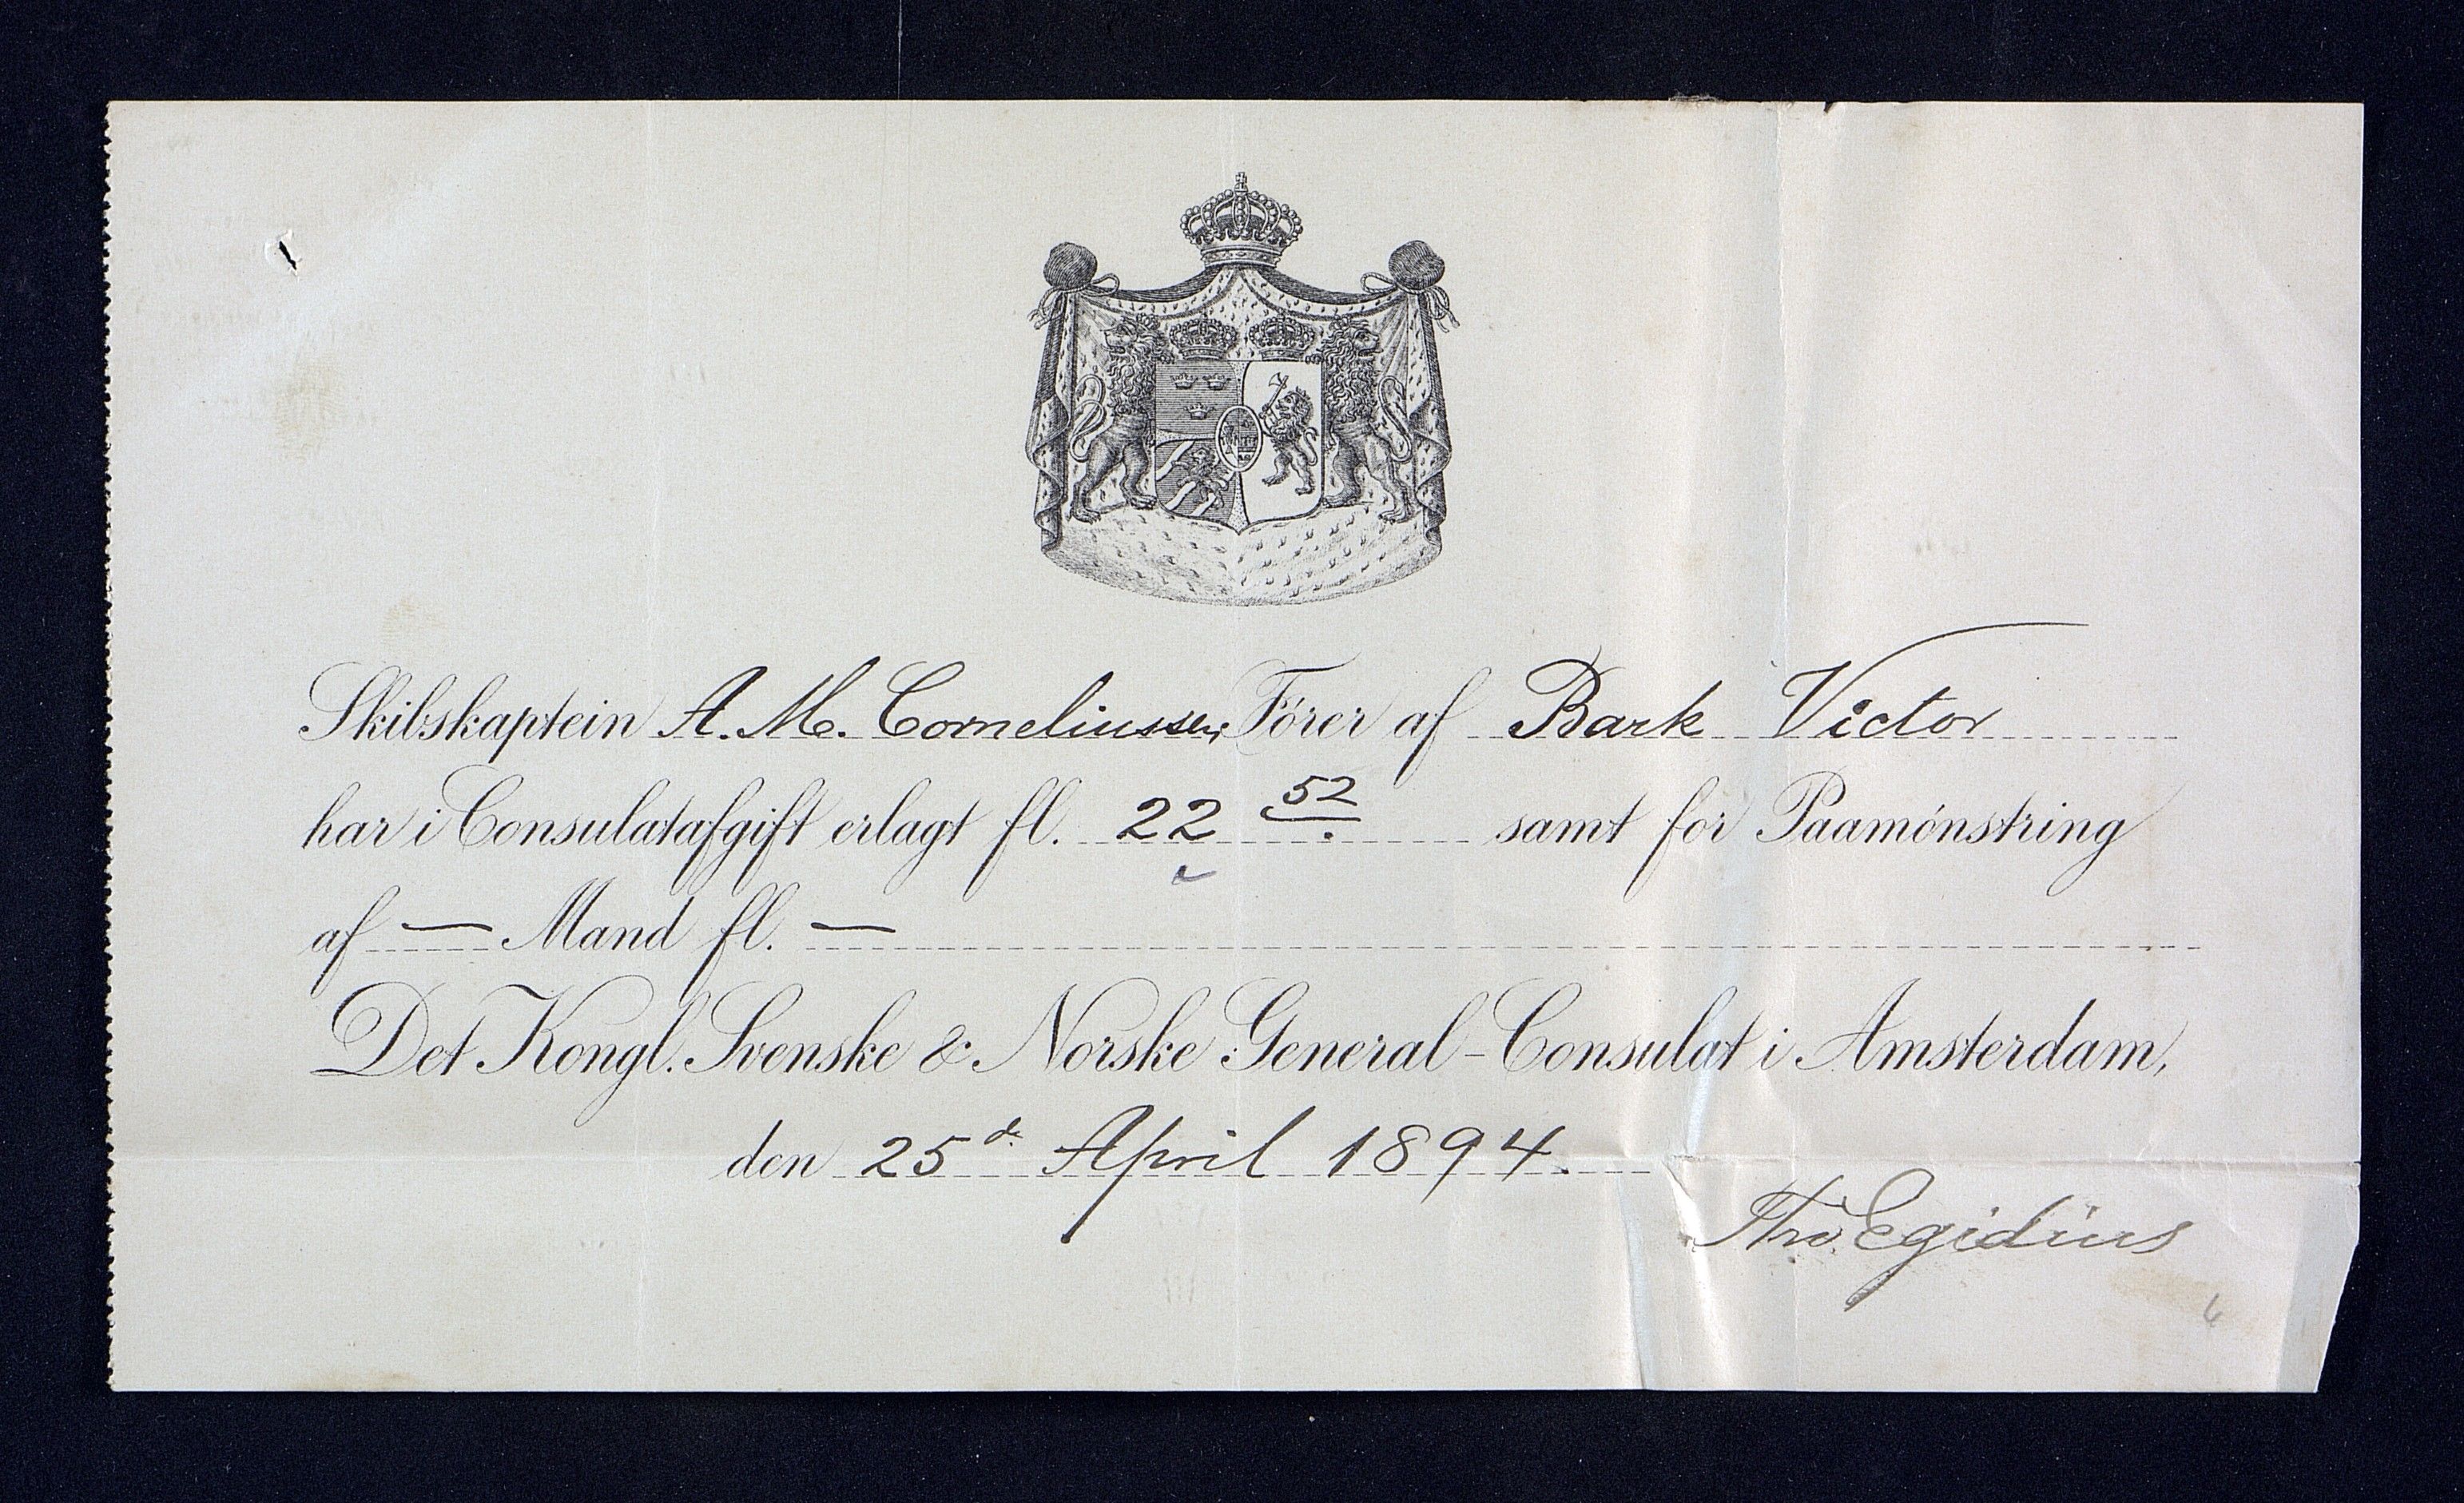 Skibskaptein A. M. Corneliussen, Förer af Bark Victor
har i Consulatafgift erlagt fl. 22 52 samt for Paamönstring
af — Mand fl. —
Det Kongl. Svenske & Norske General-Consulat i Amsterdam,
den 25d April 1894.
Egidius
6